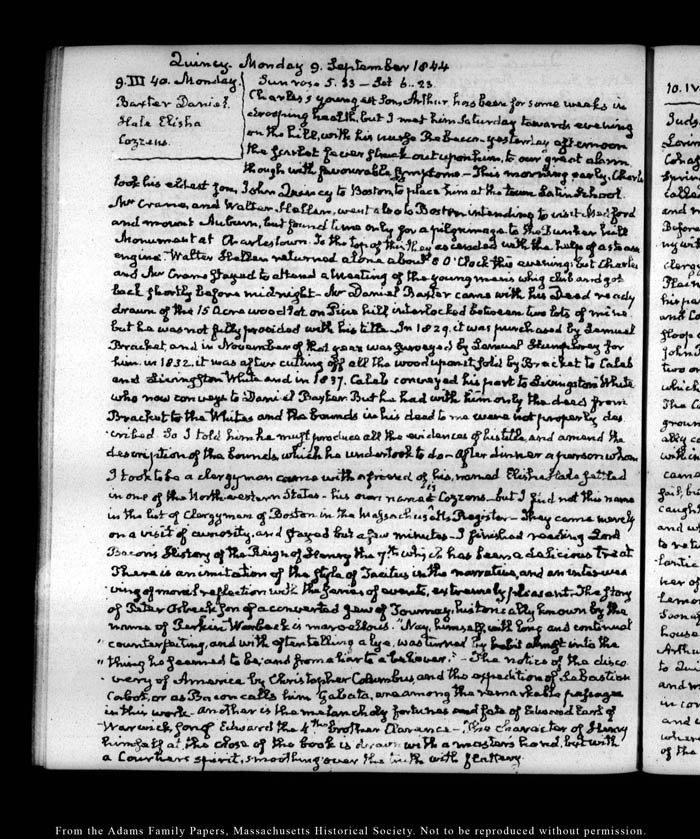 Quincy. Monday 9. September 1844
9. III 40. Monday. Sun rose 5.33 – Set 6..23.
Baxter Daniel.
Hale Elisha
Cozzens.
Charles's youngest Son, Arthur has been for some weeks in
drooping health, but I met him Saturday towards evening
on the hill, with his nurse Rebecca – yesterday afternoon
the scarlet fever struck out upon him, to our great alarm
though with favourable symptoms – This morning early, Charles
took his eldest son, John Quincy to Boston, to place him at the town Latin School.
Mr Crane, and Walter Hellen, went also to Boston intending to visit Medford
and mount Auburn, but found time only for a pilgrimage to the Bunker hill
Monument at Charlestown. To the top of this they ascended with the help of a steam
engine. Walter Hellen returned alone about 8 O'Clock this evening; but Charles
and Mr Crane stayed to attend a Meeting of the young men's whig club and got
back shortly before midnight – Mr Daniel Baxter came with his Deed ready
drawn of the 15 Acre wood lot on Pine hill interlocked between two lots of mine.
but he was not fully provided with his title. In 1829. it was purchased by Samuel
Bracket, and in November of that year was surveyed by Lemuel Humphrey for
him. in 1832. it was after cutting off all the wood upon it sold by Bracket to Caleb
and Livingston White and in 1837. Caleb conveyed his part to Livingston White
who now conveys to Daniel Baxter But he had with him only the deed from
Bracket to the Whites and the bounds in his deed to me were not properly des
cribed. So I told him he must produce all the evidences of his title, and amend the
description of the bounds, which he undertook to do – After dinner a person whom
I took to be a clergyman came with a friend of his, named Elisha Hale settled
in one of the North-western States – his own name is Cozzens – but I find not this name
in the list of Clergymen of Boston in the Massachusetts Register – They came merely
on a visit of curiosity, and stayed but a few minutes – I finished reading Lord
Bacon's History of the Reign of Henry the 7th which has been a delicious treat
There is an imitation of the style of Tacitus in the narrative, and an interwea
ving of moral reflection with the series of events, extremely pleasant. The story
of Peter Osbeck son of a converted Jew of Tournay, historically known by the
name of Perkin Warbeck is marvellous. "Nay, himself, with long and continual
" counterfeiting, and with often telling a lye, was turned by habit almost into the
" thing he seemed to be; and from a liar to a believer." – The notice of the disco
very of America by Christopher Columbus and the expedition of Sebastian
Cabot, or as Bacon calls him Gabata, are among the remarkable passages
in this work – another is the melancholy fortunes and fate of Edward Earl of
Warwick, son of Edward the 4th's brother Clarence – The character of Henry
himself at the close of the book is drawn with a master's hand, but with
a Courtier's spirit, smoothing over the truth with flattery.
From the Adams Family Papers, Massachusetts Historical Society. Not to be reproduced without permission.